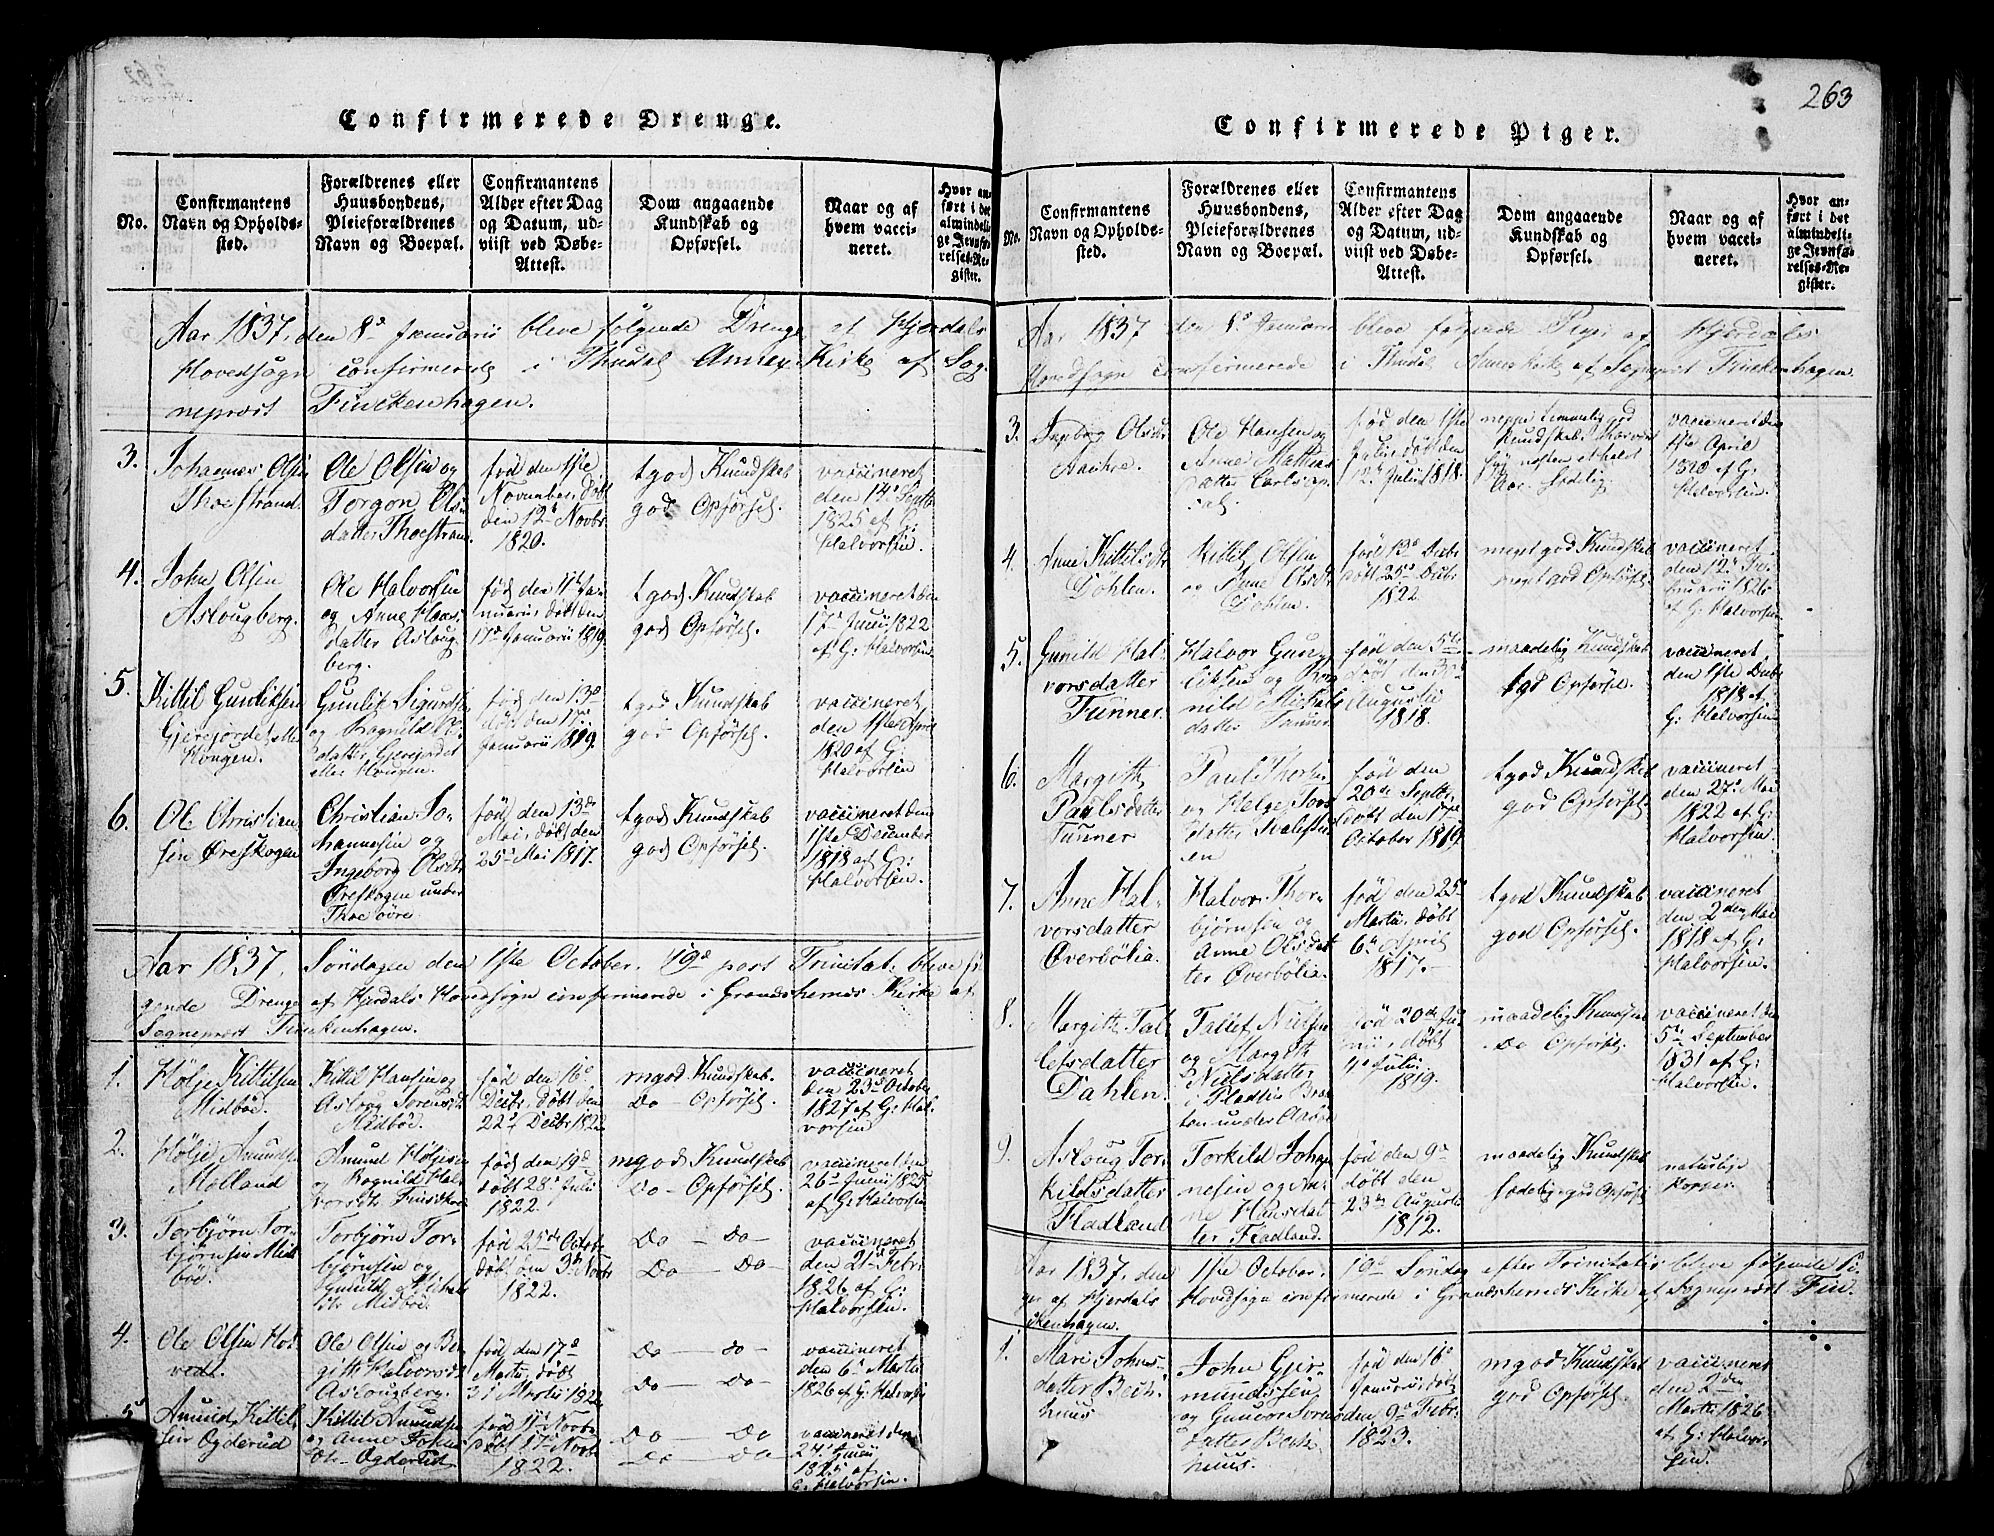 263
Confirmerede Drenge.
No.
Confirmantens
Navn og Opholds-
sted.
Forældrenes eller
Huusbondens,
Pleieforældrenes
Navn og Boepæl.
Confirmantens
Alder efter Dag
og Datum, ud-
viist ved Døbe-
Attest.
Dom angaaende
Kundskab og
Opførsel.
Naar og af
hvem vacci-
neret.
Hvor an-
ført i det
almindeli-
ge Jevnfø-
relses-Re-
gister.
Aar 1837, den 8de Januarii bleve følgende Drenge af Hjerdals
Hovedsogn confirmerede i Thudal Annex Kirke af Sog-
neprest Finckenhagen.
3.
Johannes Olsen
Thoestrand
Ole Olsen og
Torgon Ols-
datter Thoestran
fød den 1ste
November, døbt
den 12te Novbr
1820.
tgod Kundskab
god Opførsel.
vaccineret
den 14de Septb
1825 af G:
Halvorsen.
4.
John Olsen
Aslougberg.
Ole Halvorsen
og Anne
datter Asloug-
berg.
fød den Ja-
nuarii, døbt den
17de Januarii 1819.
tgod Kundskab
god Opførsel.
vaccineret den
17de Junii 1822
af G: Halvorsen
5.
Kittil Gunliksen
Gjerejordet eller
Hougen.
Gunlik Sigurdsen
og Ragnild
datter Gjerejordet
eller Hougen.
fød den 13de
døbt den 17de
Januarii 1819.
tgod Kundskab
god Opførsel.
vaccineret
den 1ste April
1820 af G:
Halvorsen
6.
Ole Christian-
sen Øreskogen
Christian Jo-
hannesen og
Ingeborg Olsdtr
Øreskogen under
Thoe øvre.
fød den 13de
Mai, døbt den
25de Mai 1817.
tgod Kundskab
god Opførsel.
vaccineret den
1ste December
1818 af G:
Halvorsen.
Aar 1837, Søndagen den 1ste October, 19de post Trinitat: bleve føl-
gende Drenge af Hjerdals Hovedsogn confirmerede i Grandsherres Kirke af
Sogneprest Finckenhagen.
1.
Hølje Kittilsen
Midbøe.
Kittil Hansen og
Asloug Sorensdtr
Midbøe.
fød den 16de
Decbr, døbt den
22de Decbr 1822
mgod Kundskab.
Do — Opførsel.
vaccineret
den 23de October
1827 af G: Hal-
vorsen
2.
Hølje Amunds
Molland
Amund Høljesen
og Ragnild Hal-
vorsdtr
fød den 19de
døbt 28de Juli
1822.
mgod Kundskab
Do — Opførsel.
vaccineret den
26de Junii 1825
af G: Halvorsen
3.
Torbjørn Tor-
bjørnsen Mid-
bøe.
Torbjørn Tor-
bjørnsen og
Gunild Michels
dtr Midbøe.
fød 25de Octob
døbt den 3de Novbr
1822.
Do — Do —
Do — Do —
vaccineret
den 21de Febr
1826 af G:
Halvorsen.
4.
Ole Olsen Ho-
vedt.
Ole Olsen og Bir-
gith Halvorsdtr
Aslougberg.
fød den 17de
Martii, døbt
31 Martii 1822
Do — Do —
Do — Do —
vaccineret
den 6te Martii
1826 af G: Halvorsen
5.
Amund Kittil-
sen Ogderud
Kittil Amundsen
og Anne John
dtr Ogderud
fød 11te Novbr
døbt 17de Novbr
1822.
Do — Do
Do — Do
vaccineret den
24de Junii
1825 af
G: Halvorsen.
Confirmerede Piger.
No.
Confirmantens
Navn og Opholds-
sted.
Forældrenes eller
Huusbondens,
Pleieforældrenes
Navn og Boepæl.
Confirmantens
Alder efter Dag
og Datum, ud-
viist ved Døbe-
Attest.
Dom angaaende
Kundskab og
Opførsel.
Naar og af
hvem vacci-
neret.
Hvor an-
ført i det
almindeli-
ge Jevnfø-
relses-Re-
gister.
Aar 1837 den 8de Januarii bleve følgende Piger af Hjerdals
Hovedsogn confirmerede i Thudal Annex Kirke af Sogneprest Finckenhagen.
3.
Ingeborg Olsdtr
Ole Hansen og
Anne Mathias
datter
fød den 1ste
Julii, døbt den
12te Julii 1818.
neppe temmelig god
Kundskab,
næsten et heelt
Aar. Sædelig.
vaccineret den
1ste April
1820 af G:
Halvorsen.
4.
Anne Kittilsdtr
Döhlen.
Kittil Olsen
og Anne Olsdtr
Dohlen.
fød 13de Decbr
døbt 25de Decbr
1822.
meget god Kundskab
meget god Opførsel.
vaccineret
den 12te Fe-
bruarii 1826
af G: Halvorsen.
5.
Gunild Hal-
vorsdatter
Tunner.
Halvor Gun-
liksen og Rog
nild Michels
datter Tunner
fød den 5te
døbt den
Augustii
1818.
maadelig Kundskab
tgod Opførsel.
vaccineret
den 1ste Decbr
1818 af
G: Halvorsen
6.
Margith
Paulsdatter
Tunner
Paul
og Helge Tors
datter
fød den
20de Septbr
døbt den
October 1819.
tgod Kundskab
god Opførsel.
vaccineret
den 27de Mai
1822 af G:
Halvorsen.
7.
Anne Hal-
vorsdatter
Overbølia.
Halvor Thor-
bjørnsen og
Anne Olsdat
ter Øverbølia.
fød den 25de
Martii, døbt
6te April
1817.
tgod Kundskab
god Opførsel.
vaccineret
den 2den Mai
1818 af G:
Halvorsen.
8.
Margith Tal-
lefsdatter
Dahlen.
Tallef Nielsen
og Margith
Nielsdatter
fød 20de Ju-
nii, døbt
4de Julii
1819.
maadelig Kundskab
Do Opførsel.
vaccineret den
5te September
1831 af G:
Halvorsen.
9.
Asloug Tor-
kildsdatter
Fladland
Torkild Johan
nesen og An-
ne Hansdat-
ter Fladland.
fød den 9de
døbt den
23de Augustii
1812.
maadelig Kundskab
sædelig, god Opførsel
naturlige
Kopper.
Aar 1837, den 1ste October, 19de Søndag efter Trinitatis bleve følgende Pi-
ger af Hjerdals Hovedsogn confirmerede i Grandsherres Kirke af Sogneprest Fin-
ckenhagen.
1.
Mari Johns-
datter Bech-
huus
John Gjer-
mundssen
og Gunvor Soren
datter Bech-
huus.
fød den 16de
Januarii, døbt
den 9de Febr.
1823.
mgod Kundskab
god Opførsel.
vaccineret
den 2den
Martii 1826
af G: Halvor
sen.